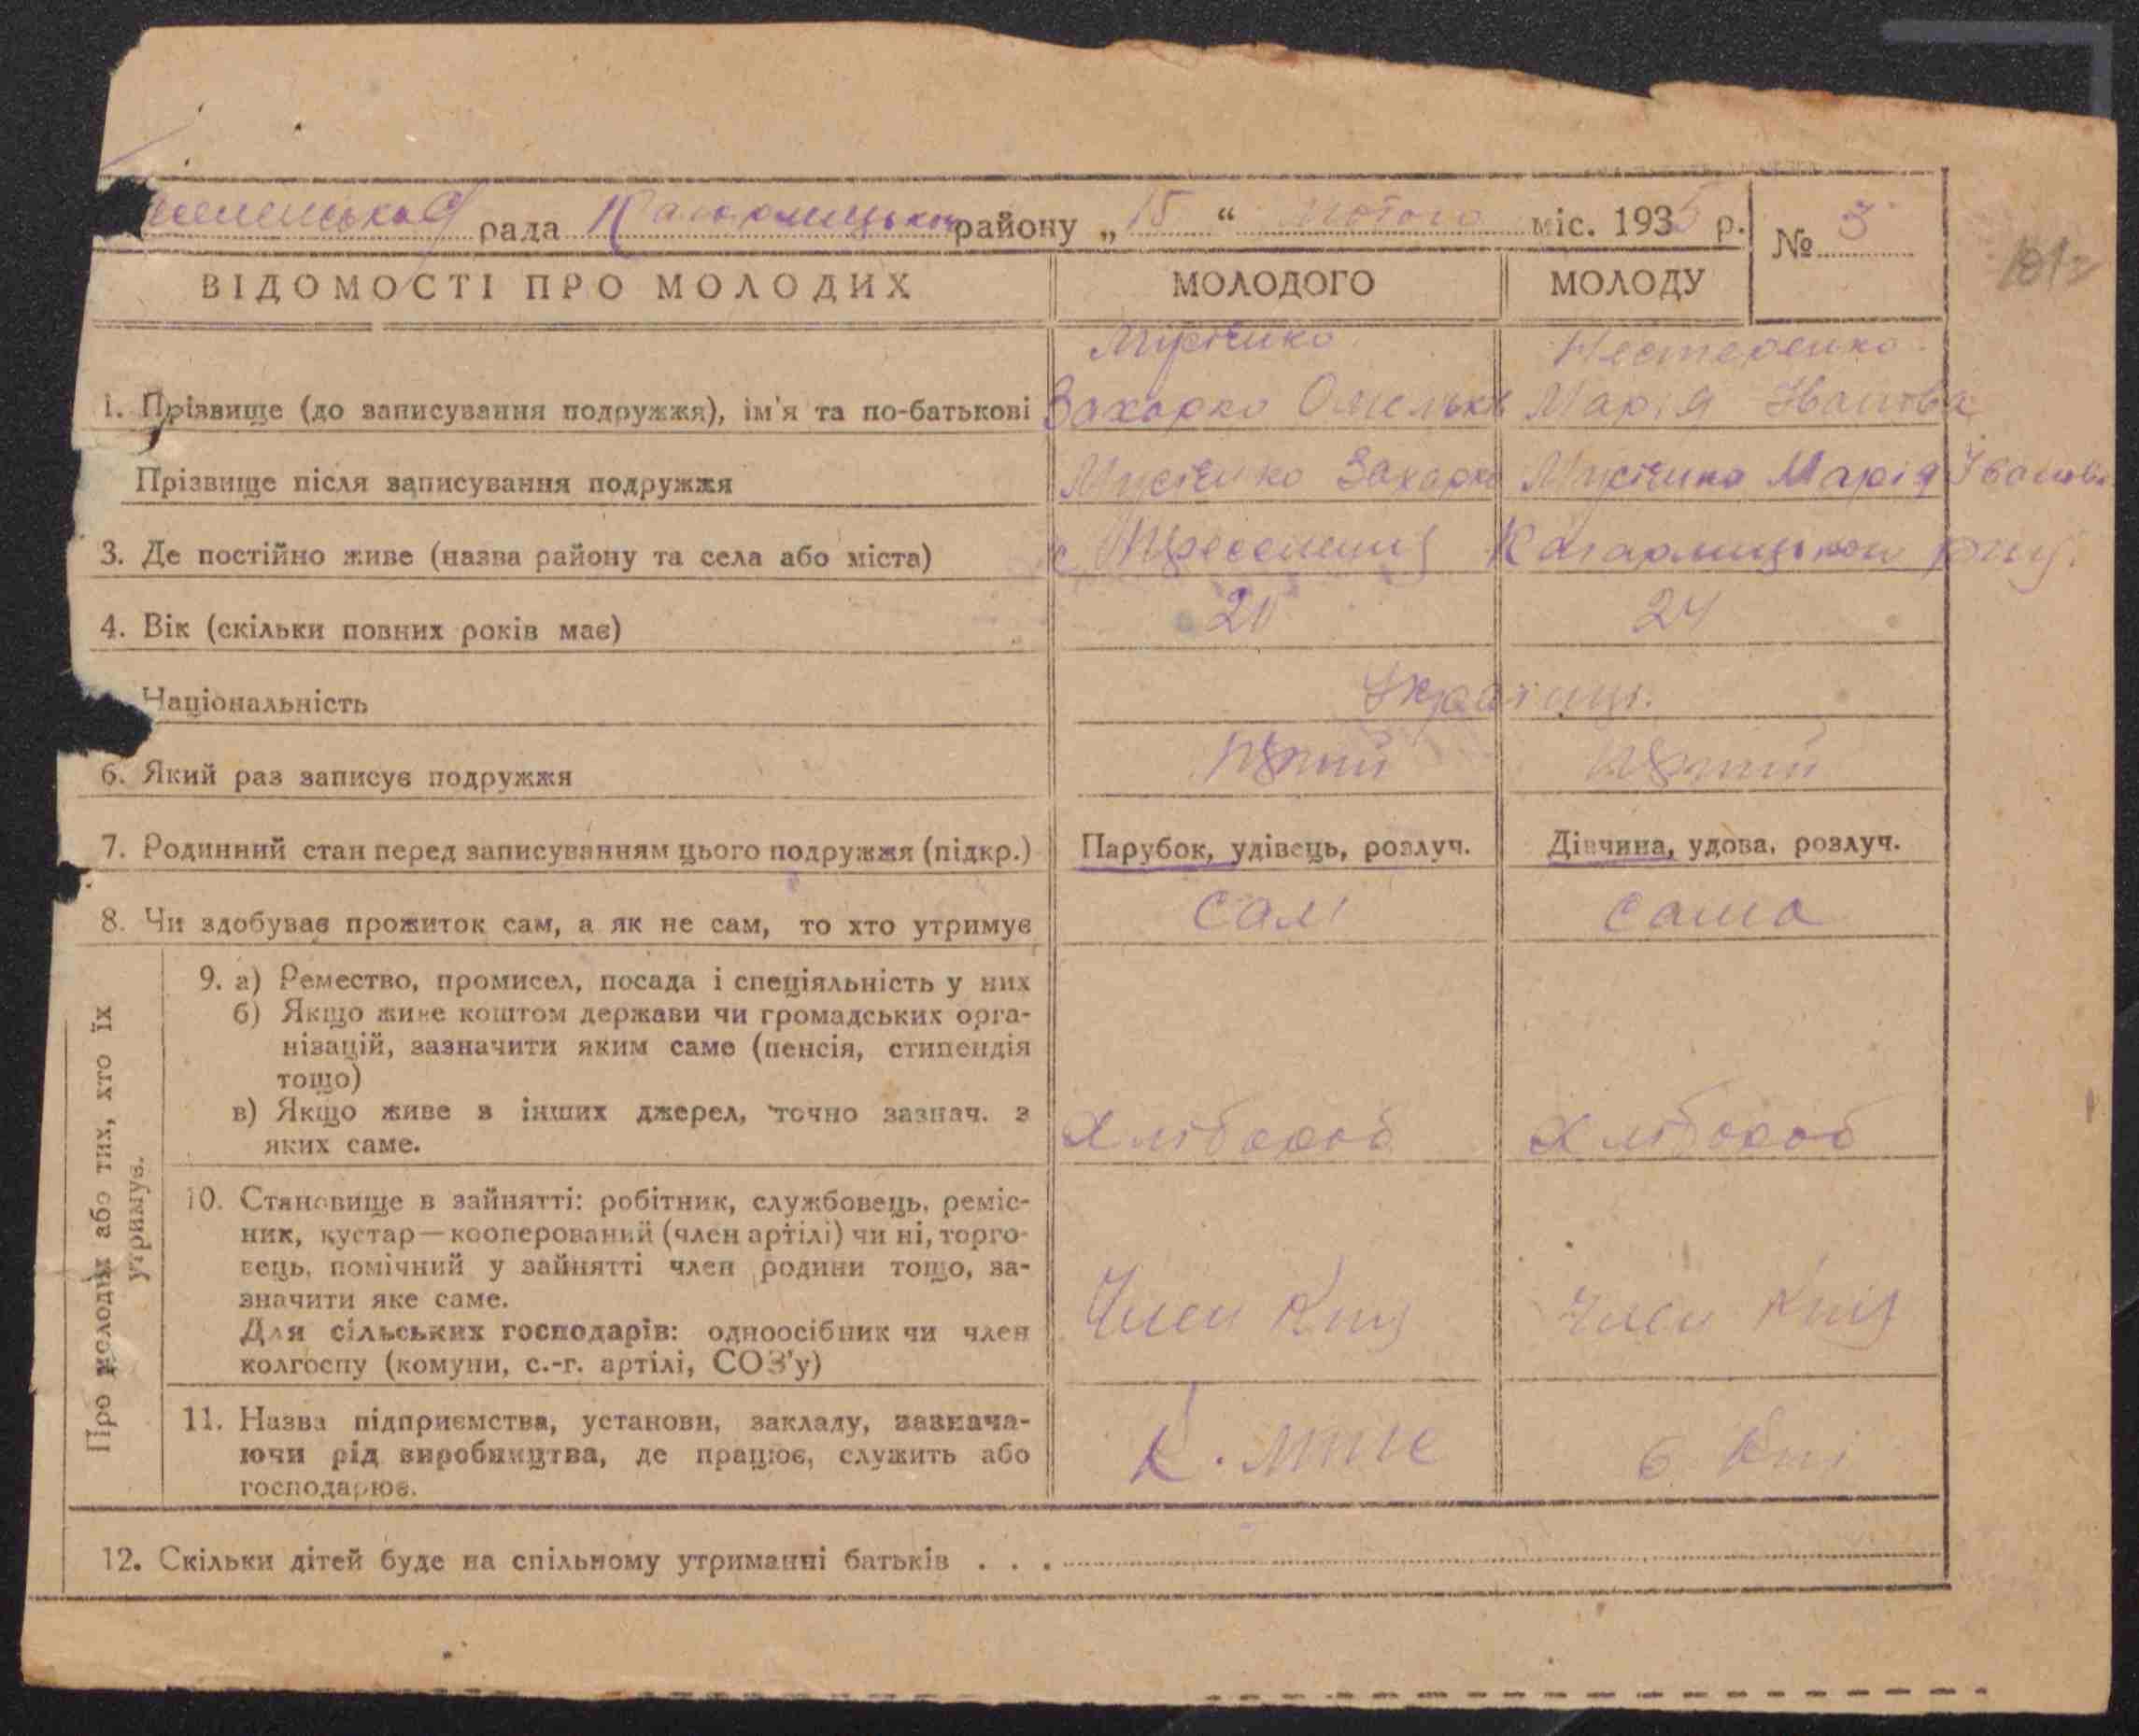 рада Кагарлицького району „ 15 “ лютого міс. 1935 р. № 3
ВІДОМОСТІ ПРО МОЛОДИХ МОЛОДОГО МОЛОДУ
Мусієнко Нестеренко
1. Прізвище (до записування подружжя), ім'я та по-батькові Захарко Омельк Марія Іванова
Прізвище після записування подружжя Мусієнко Захарко Мусієнко Марія Іванов
3. Де постійно живе (назва району та села або міста) с Кагарлицького
4. Вік (скільки повних років має) 24
Національність Українці.
6. Який раз записує подружжя перший перший
7. Родинний стан перед записуванням цього подружжя (підкр.) Парубок, удівець, розлуч. Дівчина, удова, розлуч.
8. Чи здобуває прожиток сам, а як не сам, то хто утримує сам сама
Про молодих або тих, хто їх
утримує.
9. а) Ремество, промисел, посада і спеціяльність у них
б) Якщо живе коштом держави чи громадських орга-
нізацій, зазначити яким саме (пенсія, стипендія
тощо)
в) Якщо живе з інших джерел, точно зазнач. з
яких саме. Хлібороб Хлібороб
10. Становище в зайнятті: робітник, службовець, реміс-
ник, кустар—кооперований (член артілі) чи ні, торго-
вець, помічний у зайнятті член родини тощо, за-
значити яке саме.
Для сільських господарів: одноосібник чи член Член Член
колгоспу (комуни, с.-г. артілі, СОЗ'у)
11. Назва підприємства, установи, закладу, зазнача-
ючи рід виробництва, де працює, служить або
господарює.
12. Скільки дітей буде на спільному утриманні батьків . . .